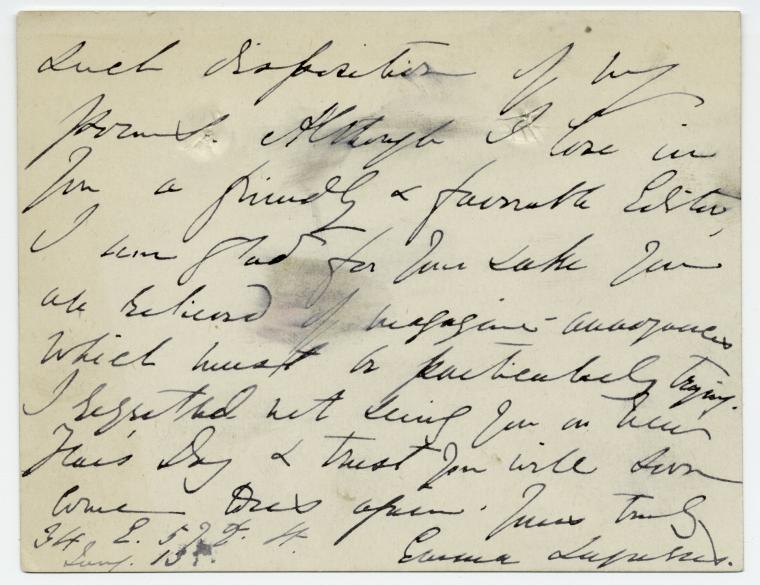 such disposition of my
poems. Although I lose in
you a friendly & favorable Editor,
I am glad for your sake you
are relieved of magazine-annoyances
which must be particularly trying.
I regretted not seeing you on New
Year's Day & trust you will soon
come again. Yours truly
34 E. 57
Jany. 13 Emma Lazarus.